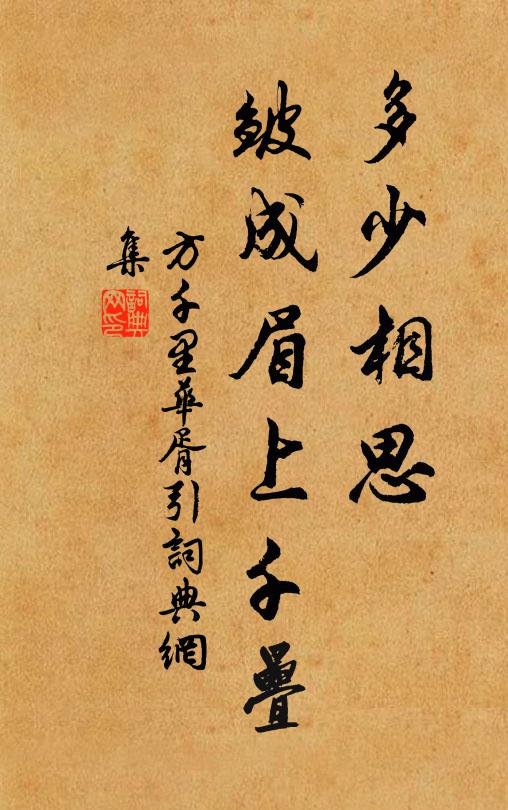 多少相思
皱成眉上千疊
方千里華胥引詞典網
集
詞典
网印